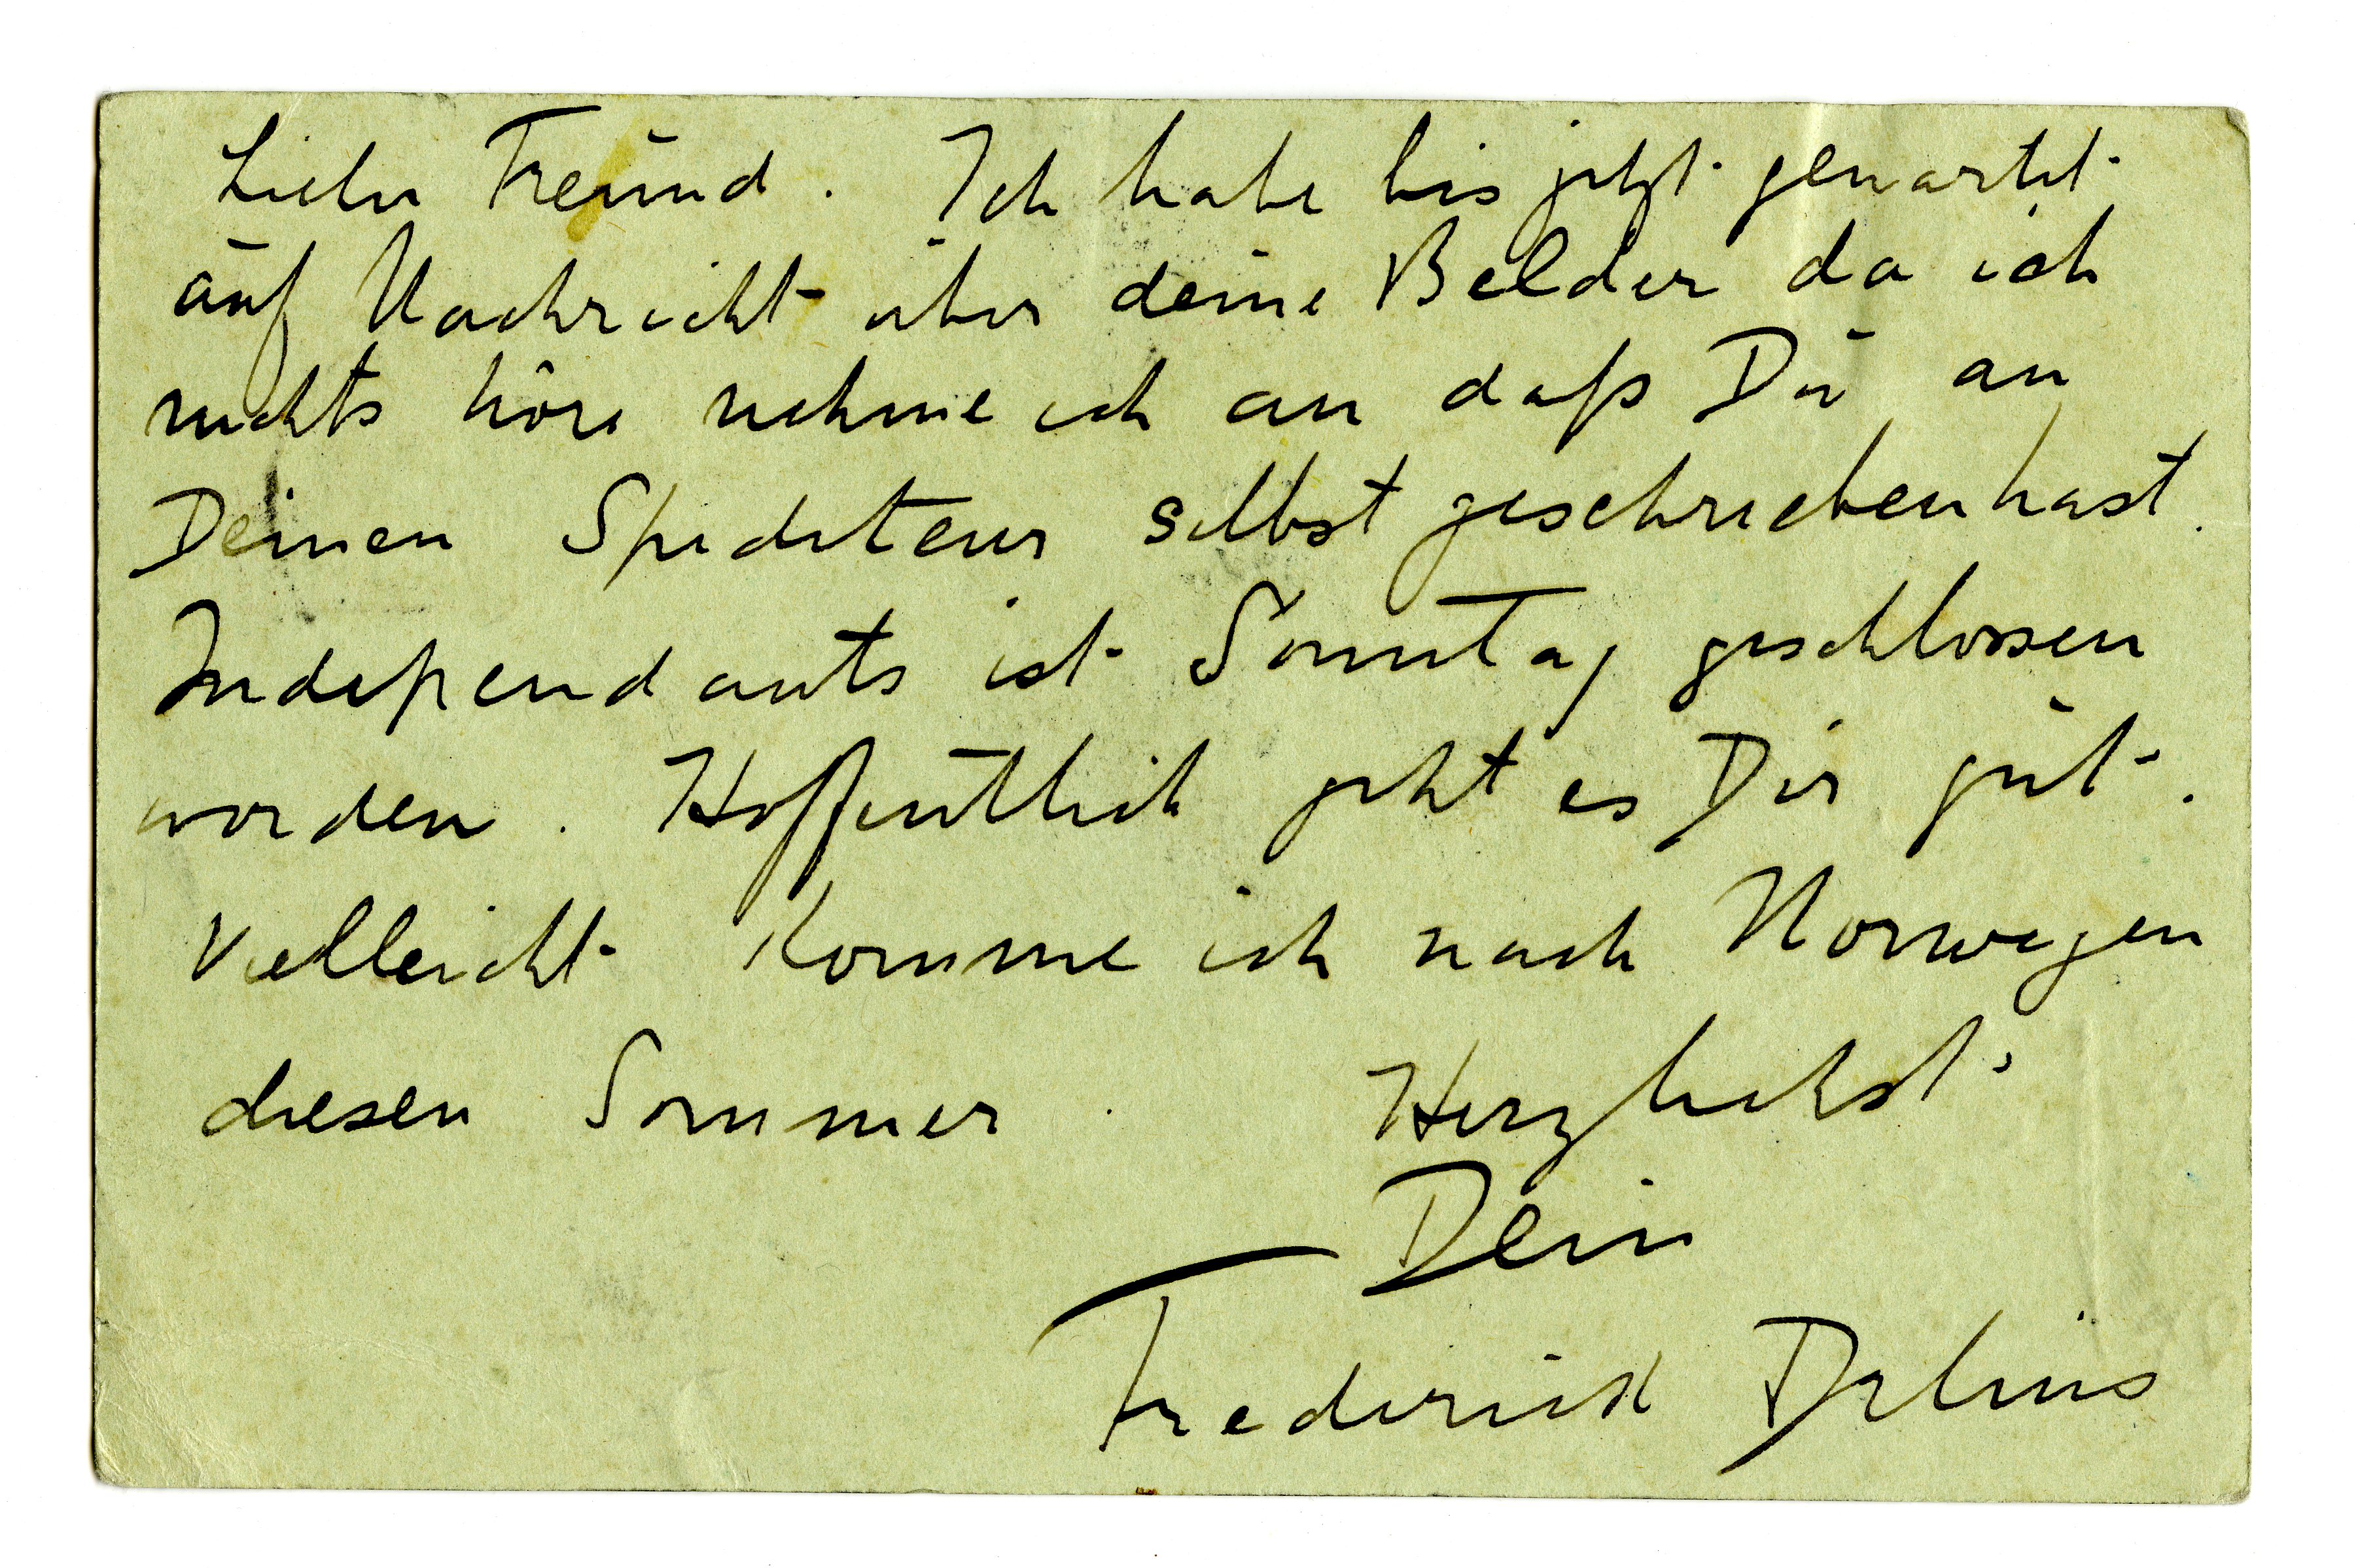 Lieber Freund. Ich habe bis jetzt gewartet
auf Nachricht über deine Belder da ich
nichts höre nehme ich an daß Du an
Deinen Spediteur selbst geschrieben hast.
Independants ist Sonntag geschlossen
worden. Hoffentlich geht es Dir gut.
Vielleicht komme ich nach Norwegen
diesen Sommer. Herzlichst
Dein
Frederick Delius